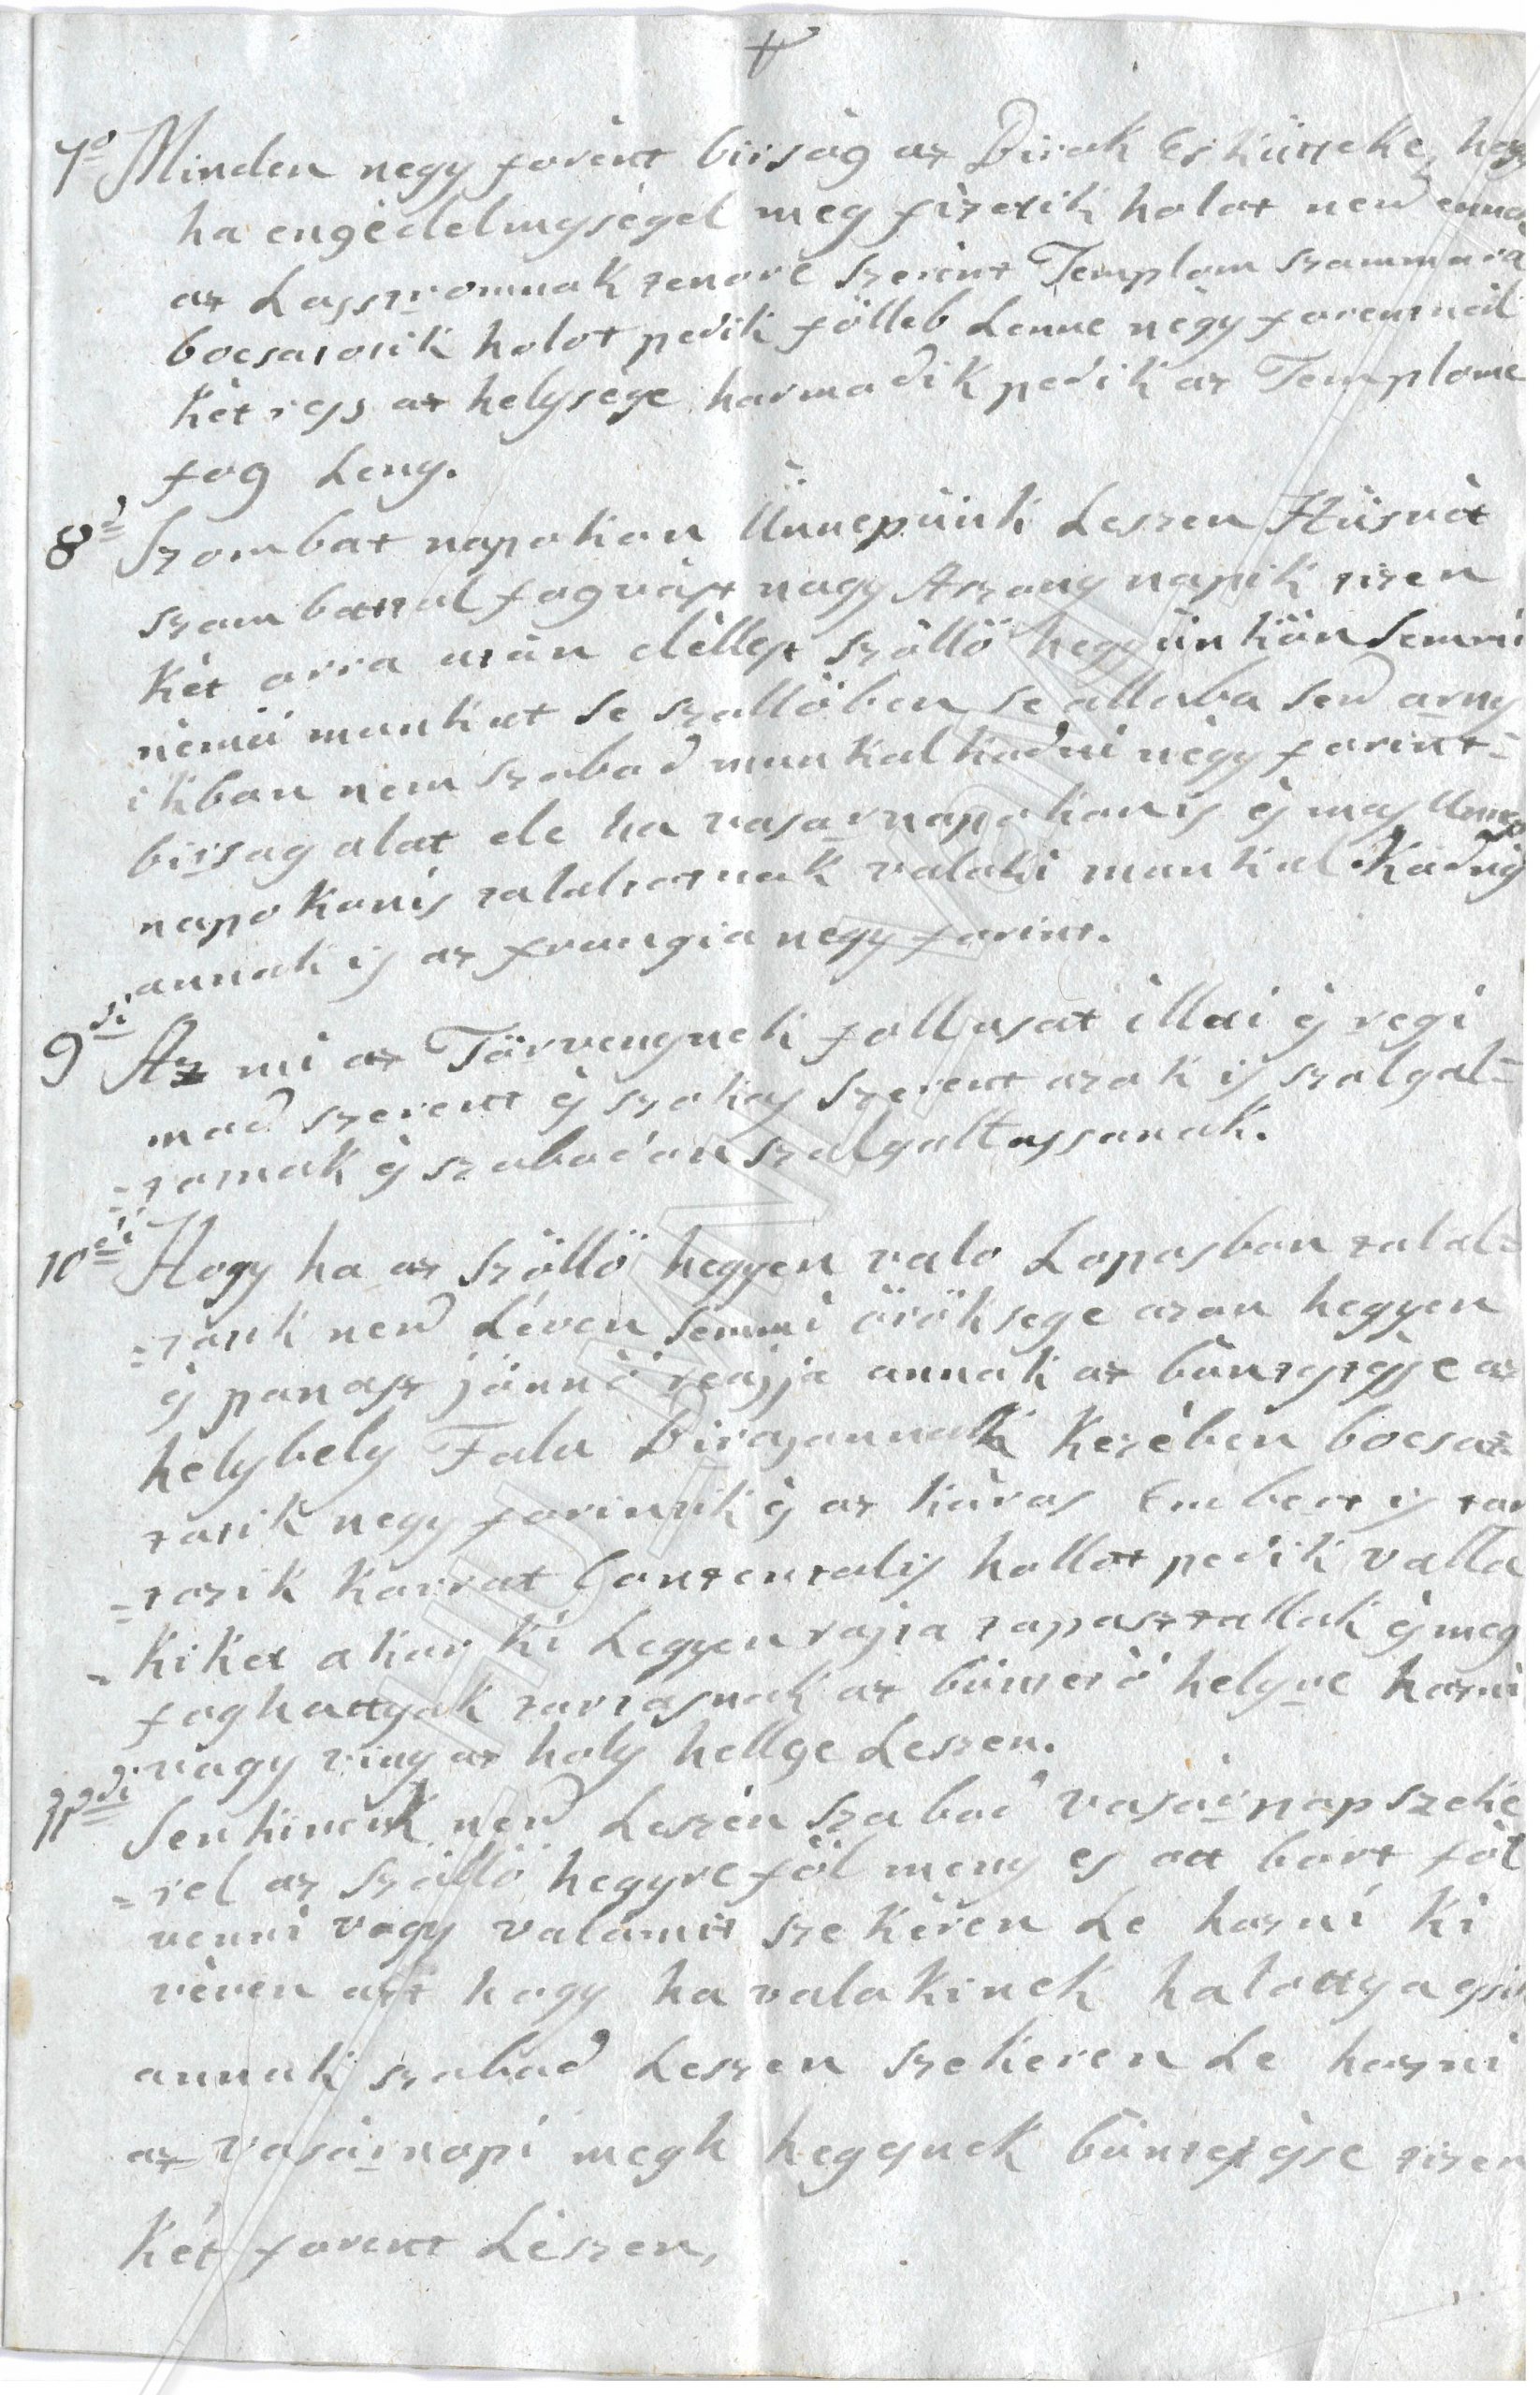 7º Minden negy forèntt birsàg az Birak Eskütteke, hogy
ha engèdelmysègel meg fizetik holot nem ennek
az Lasstromnak tenore szerènt Templom szammara
bocsatotik holot pedik fölleb Lenne nègy forentnàl
kèt ress az helysège harmadik pedik az Templome
fog Leny.
8 Szombat napokon Ünnepünk Leszen Hüsvèt
szombattol fogvàst nagy Aszony napik tizen
kèt orra utàn dèllest szöllö hegyünkön Semmi
nèmü munkat se szöllöben se allaba sem
ikban nem szabad munkalkadni nègy forint-
birsag alat de ha vasarnapokonis ès mas Ünnep
napokonis talaltatnak valaki munkalkadny
annak is az frangia negy forint.
9di Az mi az Törvenynek follasat illai ès regi
mod szerentt ès szokas szerent azok is szolgal=
=tomak ès szabadon szolgaltassanak.
10di Hogy ha az szöllö hegyen valo Lopasban talal=
=tatik nem Lèven Semmi öröksege azon hegyen
ès panasz jönnö reajja annak az bûntetesse az
helybely Falu Birajannak Kezèben bocsat=
tatik negy forintik ès az kàros Embert is tar
=tozik karrat Contentalis hollot pedik valla
=kiket akar ki Legyen rajta tapasztallak ès meg
foghattyak tartasnak az büntetö helyre hozni
vagy viny az holy hellye Leszen.
11di Senkinek nem Leszèn szabad vasàrnap szeke
=rel az szöllö hegyre föl meny es ott bort föl
venni vagy valamit szekèren Le hozni ki
vèven azt hogy ha valakinek halottya esik
annak szabad Leszen szekeren Le hozni
az vasàrnapi megh hegesnek bûntetèse tizen
Két forentt Lèszen,